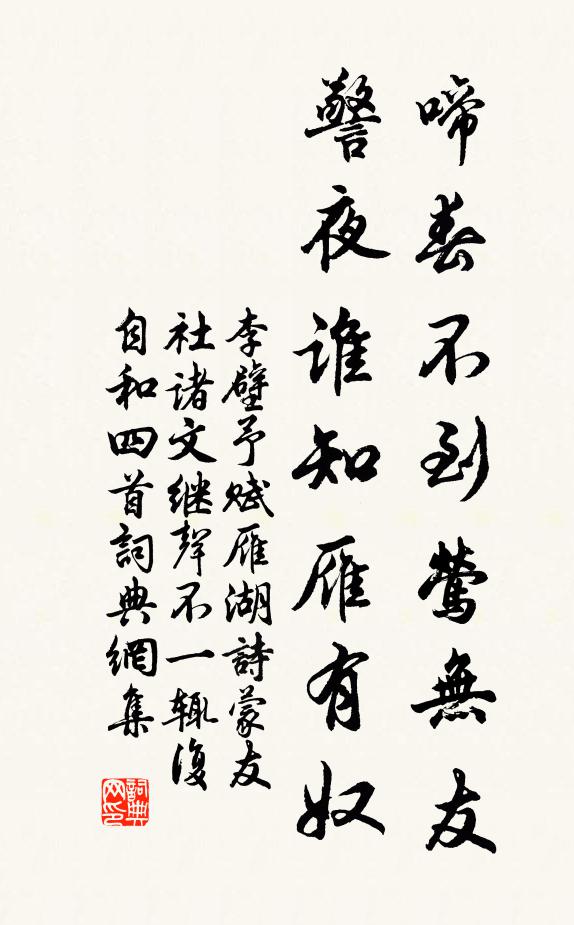 啼春不到鶯無友
警夜誰知雁有奴
李壁予賦雁湖詩蒙友
社诸文继聲不一辄復
自和四首詞典網集
詞典
网印